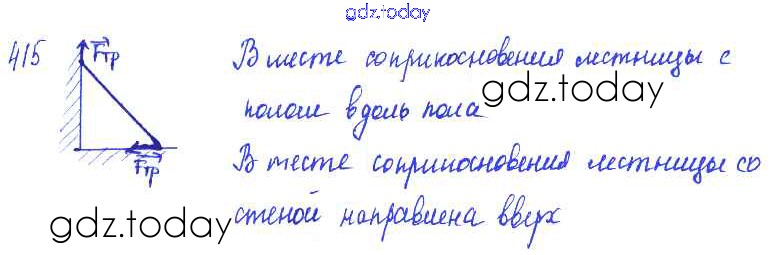 gdz.today
415 Fтр В месте соприкосновения лестницы с
полом вдоль пола
gdz.today
Fтр В месте соприкосновения лестницы со
стеной направлена вверх
gdz.today